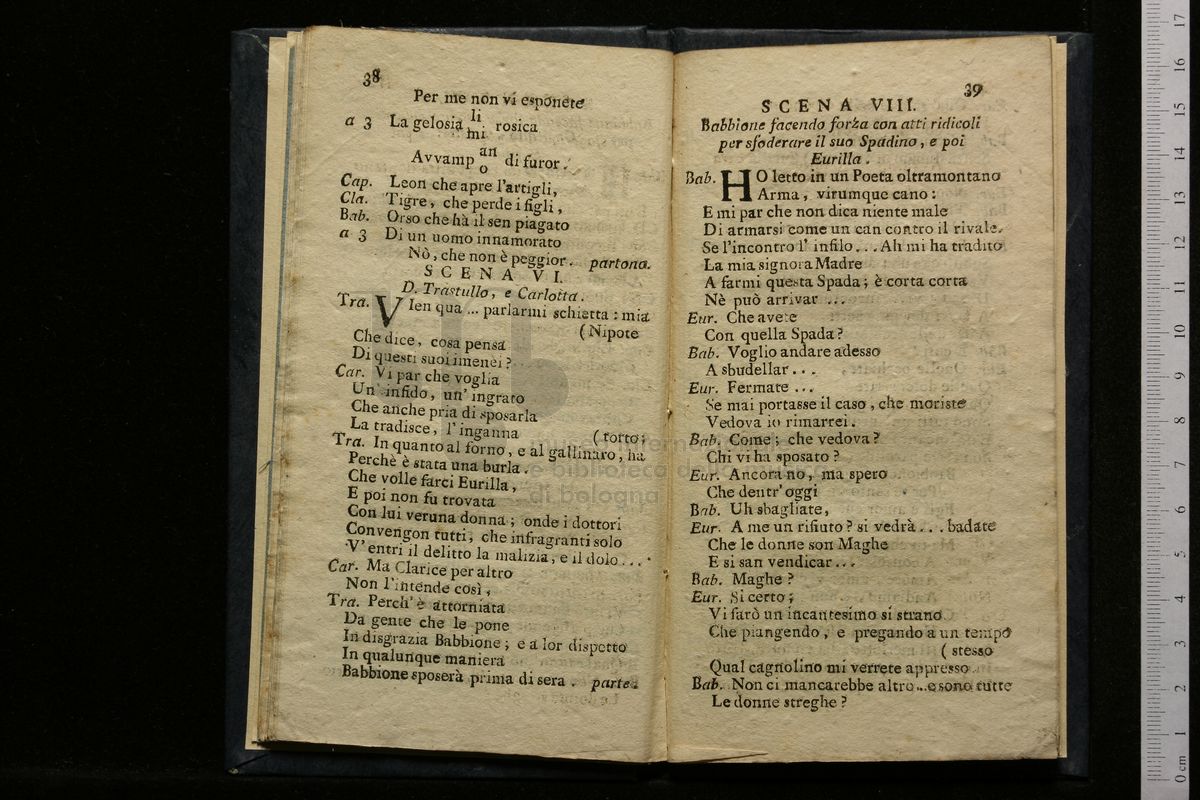 38
Per me non vi esponete
a 3 La gelosia li mi rosica
Avvamp an o di furor.
Cap. Leon che apre l'artigli,
Cla. Tigre, che perde i figli,
Bab. Orso che hà il sen piagato
a 3 Di un uomo innamorato
Nò, che non è peggior. partono.
SCENA VI.
D. Trastullo, e Carlotta.
Tra. VIen qua ... parlarmi schietta : mia
( Nipote
Che dice, cosa pensa
Di questi suoi imenei ?
Car. Vi par che voglia
Un' infido, un' ingrato
Che anche pria di sposarla
La tradisce, l'inganna
( torto;
Tra. In quanto al forno, e al gallinaro, ha
Perchè è stata una burla.
Che volle farci Eurilla,
E poi non fu trovata
Con lui veruna donna; onde i dottori
Convengon tutti, che infragranti solo
V'entri il delitto la malizia, e il dolo...
Car. Ma Clarice per altro
Non l'intende così,
Tra. Perch' è attorniata
Da gente che le pone
In disgrazia Babbione; e a lor dispetto
In qualunque maniera
Babbione sposerà prima di sera. parte.
39
SCENA VIII.
Babbione facendo forza con atti ridicoli
per sfoderare il suo Spadino, e poi
Eurilla.
Bab. HO letto in un Poeta oltramontano
Arma, virumque cano :
E mi par che non dica niente male
Di armarsi come un can contro il rivale.
Se l'incontro l' infilo... Ah mi ha tradito
La mia signora Madre
A farmi questa Spada; è corta corta
Nè può arrivar ...
Eur. Che avete
Con quella Spada ?
Bab. Voglio andare adesso
A sbudellar...
Eur. Fermate ...
Se mai portasse il caso, che moriste
Vedova io rimarrei.
Bab. Come; che vedova ?
Chi vi ha sposato ?
Eur. Ancora no, ma spero
Che dentr' oggi
Bab. Uh sbagliate,
Eur. A me un rifiuto ? si vedrà... badate
Che le donne son Maghe
E si san vendicar...
Bab. Maghe ?
Eur. Si certo;
Vi farò un incantesimo sì strano
Che piangendo, e pregando a un tempo
( stesso
Qual cagnolino mi verrete appresso.
Bab. Non ci mancarebbe altro... e sono tutte
Le donne streghe ?
museo internazionale
e biblioteca della musica
di bologna
0 cm 1 2 3 4 5 6 7 8 9 10 11 12 13 14 15 16 17